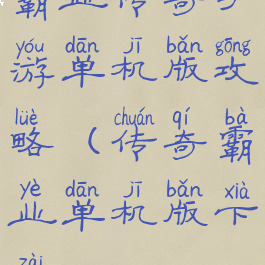 霸业传奇手
yóu dān jī bǎn gōng
游单机版攻
lüè chuán qí bà
略（传奇霸
yè dān jī bǎn xià
业单机版下
zài